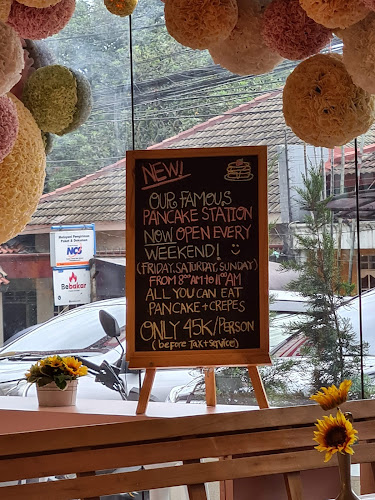 NEW!
OUR FAMOUS
PANCAKE STATION
NOW OPEN EVERY
WEEKEND!
(FRIDAY, SATURTAY, SUNDAY)
FROM 8AM TO 11AM
ALL YOU CAN EAT
PANCAKE + CREPES
ONLY 45K/PERSON
(before Tax + Service)
NCS
Bebakar